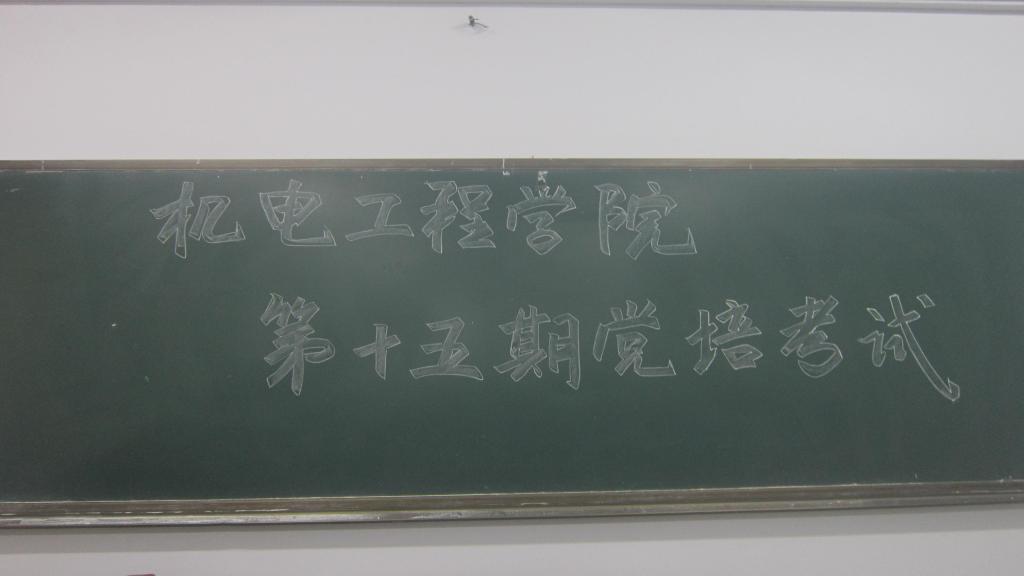 机电工程学院
第十五期党培考试